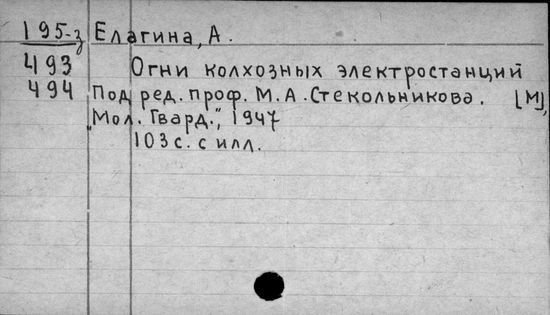 195-з Елагина, А.
493 Огни колхозных электростанций
494 Под ред. проф. М.А.Стекольникова. [М],
„Мол. Гвард.", 1947
103 с. с илл.